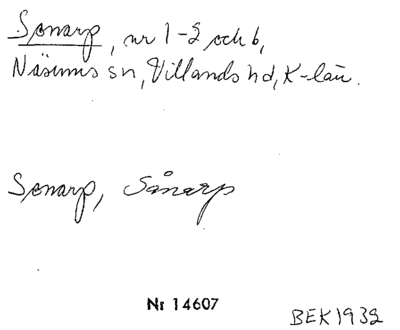 Sonarp, nr 1-2 och 6,
Näsums sn, Villands hd, K-län.
Sonarp, Sånarp
Nr 14607
BEK1932